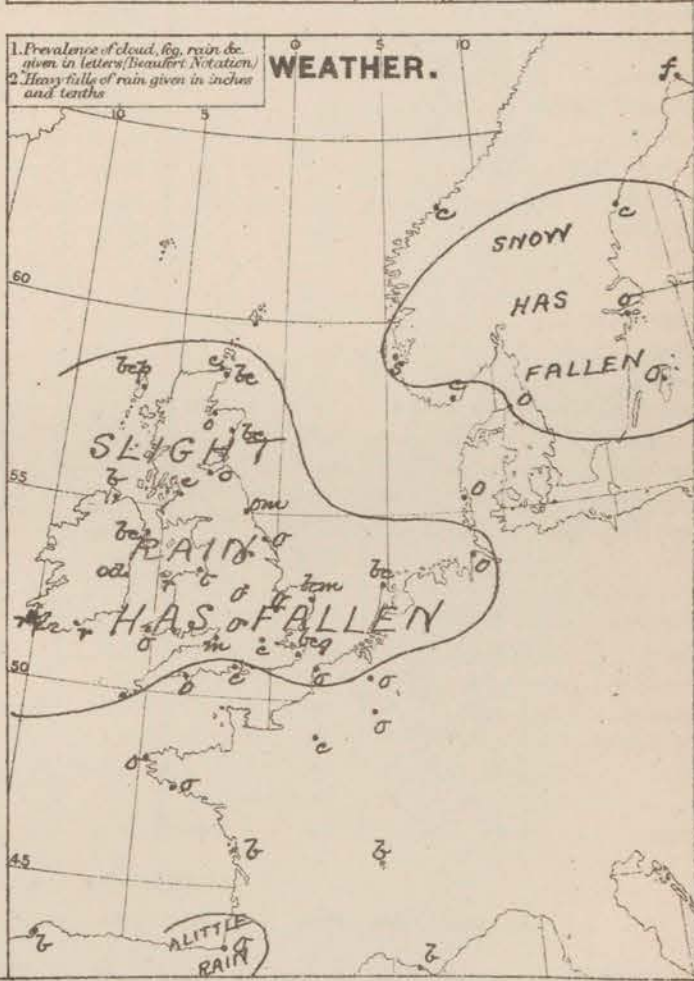 1. Prevalence of cloud, fog, rain &c.
given in letters (Beaufort Notation)
2. Heavy falls of rain given in inches
and tenths
WEATHER.
0 5 10
10 5
f
c
c
SNOW
60
HAS
o
FALLEN
o
s
c
o
bcp
c
bc
o
bc
SLIGHT
o
55
b
c
o
om
bc
RAIN
o
o
od
r
b
bc
o
o
bcm
HAS FALLEN
r
o
o
m
c
bcq
50
o
c
o
o
o
c
o
o
b
b
45
b
A LITTLE
o
RAIN
b